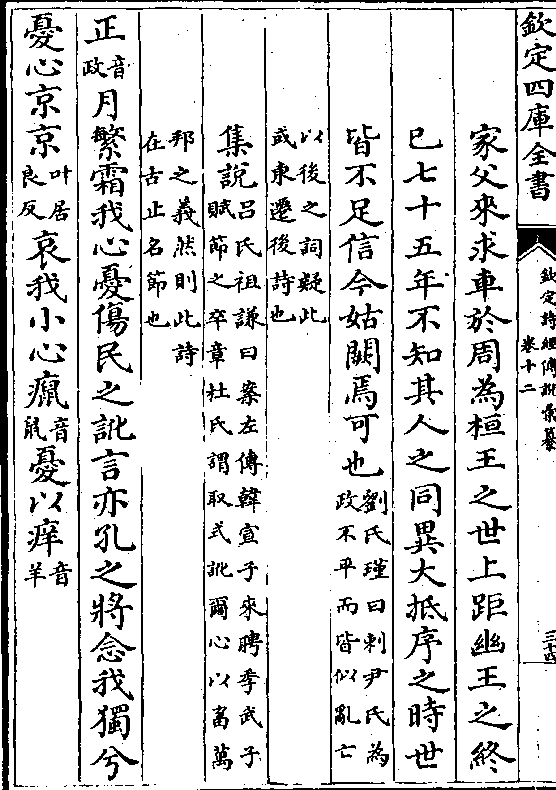 欽定四庫全書
欽定詩經傳說彙纂
卷十二
三十四
家父來求車於周為桓王之世上距幽王之終
已七十五年不知其人之同異大抵序之時世
皆不足信今姑闕焉可也劉氏瑾曰刺尹氏為
政不平而皆似亂亡
以後之詞疑此
或東遷後詩也
集說呂氏祖謙曰案左傳韓宣子來聘季武子
賦節之卒章杜氏謂取式訛爾心以畜萬
邦之義然則此詩
在古止名節也
正音
政月繁霜我心憂傷民之訛言亦孔之將念我獨兮
憂心京京叶居
良反哀我小心癙音
鼠憂以痒音
羊